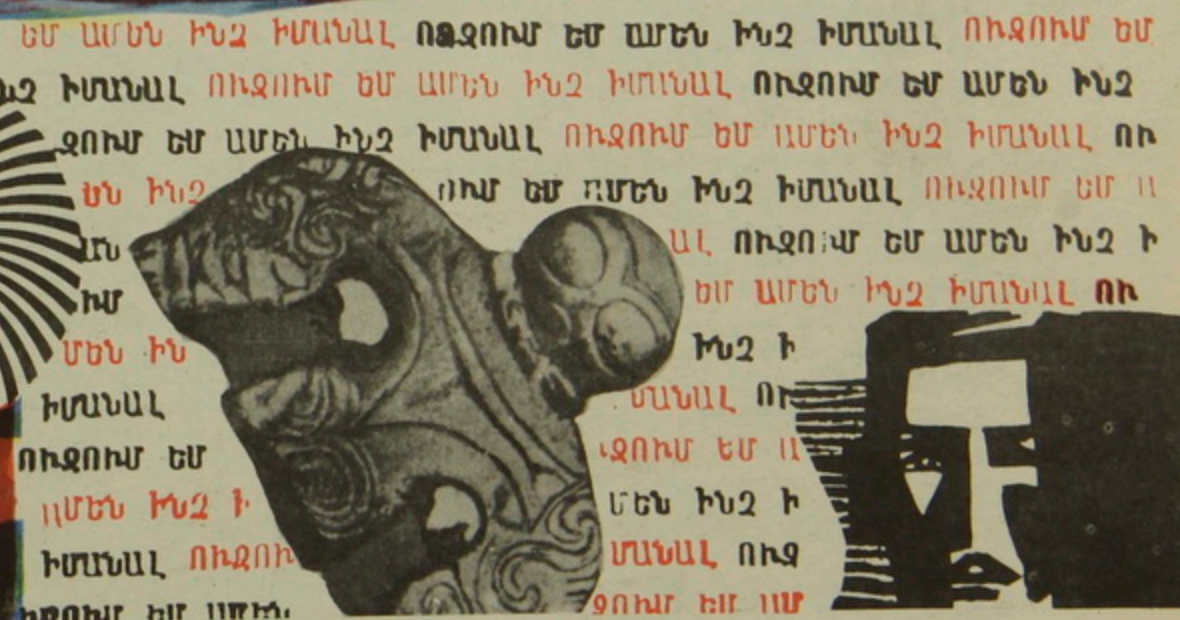 ԵՄ ԱՄԵՆ ԻՆՉ ԻՄԱՆԱԼ ՈՒԶՈՒՄ ԵՄ ԱՄԵՆ ԻՆՉ ԻՄԱՆԱԼ ՈՒԶՈՒՄ ԵՄ
ՆՉ ԻՄԱՆԱԼ ՈՒԶՈՒՄ ԵՄ ԱՄԵՆ ԻՆՉ ԻՄԱՆԱԼ ՈՒԶՈՒՄ ԵՄ ԱՄԵՆ ԻՆՉ
ԶՈՒՄ ԵՄ ԱՄԵՆ ԻՆՉ ԻՄԱՆԱԼ ՈՒԶՈՒՄ ԵՄ ԱՄԵՆ ԻՆՉ ԻՄԱՆԱԼ ՈՒ
ԵՆ ԻՆՉ ՈՒՄ ԵՄ ԱՄԵՆ ԻՆՉ ԻՄԱՆԱԼ ՈՒԶՈՒՄ ԵՄ Ա
ԱՆ ԱԼ ՈՒԶՈՒՄ ԵՄ ԱՄԵՆ ԻՆՉ Ի
ՒՄ ԵՄ ԱՄԵՆ ԻՆՉ ԻՄԱՆԱԼ ՈՒ
ՄԵՆ ԻՆ ԻՆՉ Ի
ԻՄԱՆԱԼ ՄԱՆԱԼ ՈՒ
ՈՒԶՈՒՄ ԵՄ ԶՈՒՄ ԵՄ Ա
ԱՄԵՆ ԻՆՉ Ի ՄԵՆ ԻՆՉ Ի
ԻՄԱՆԱԼ ՈՒԶՈՒ ՄԱՆԱԼ ՈՒԶ
ՒԶՈՒՄ ԵՄ ԱՄԵՆ ԶՈՒՄ ԵՄ ԱՄ